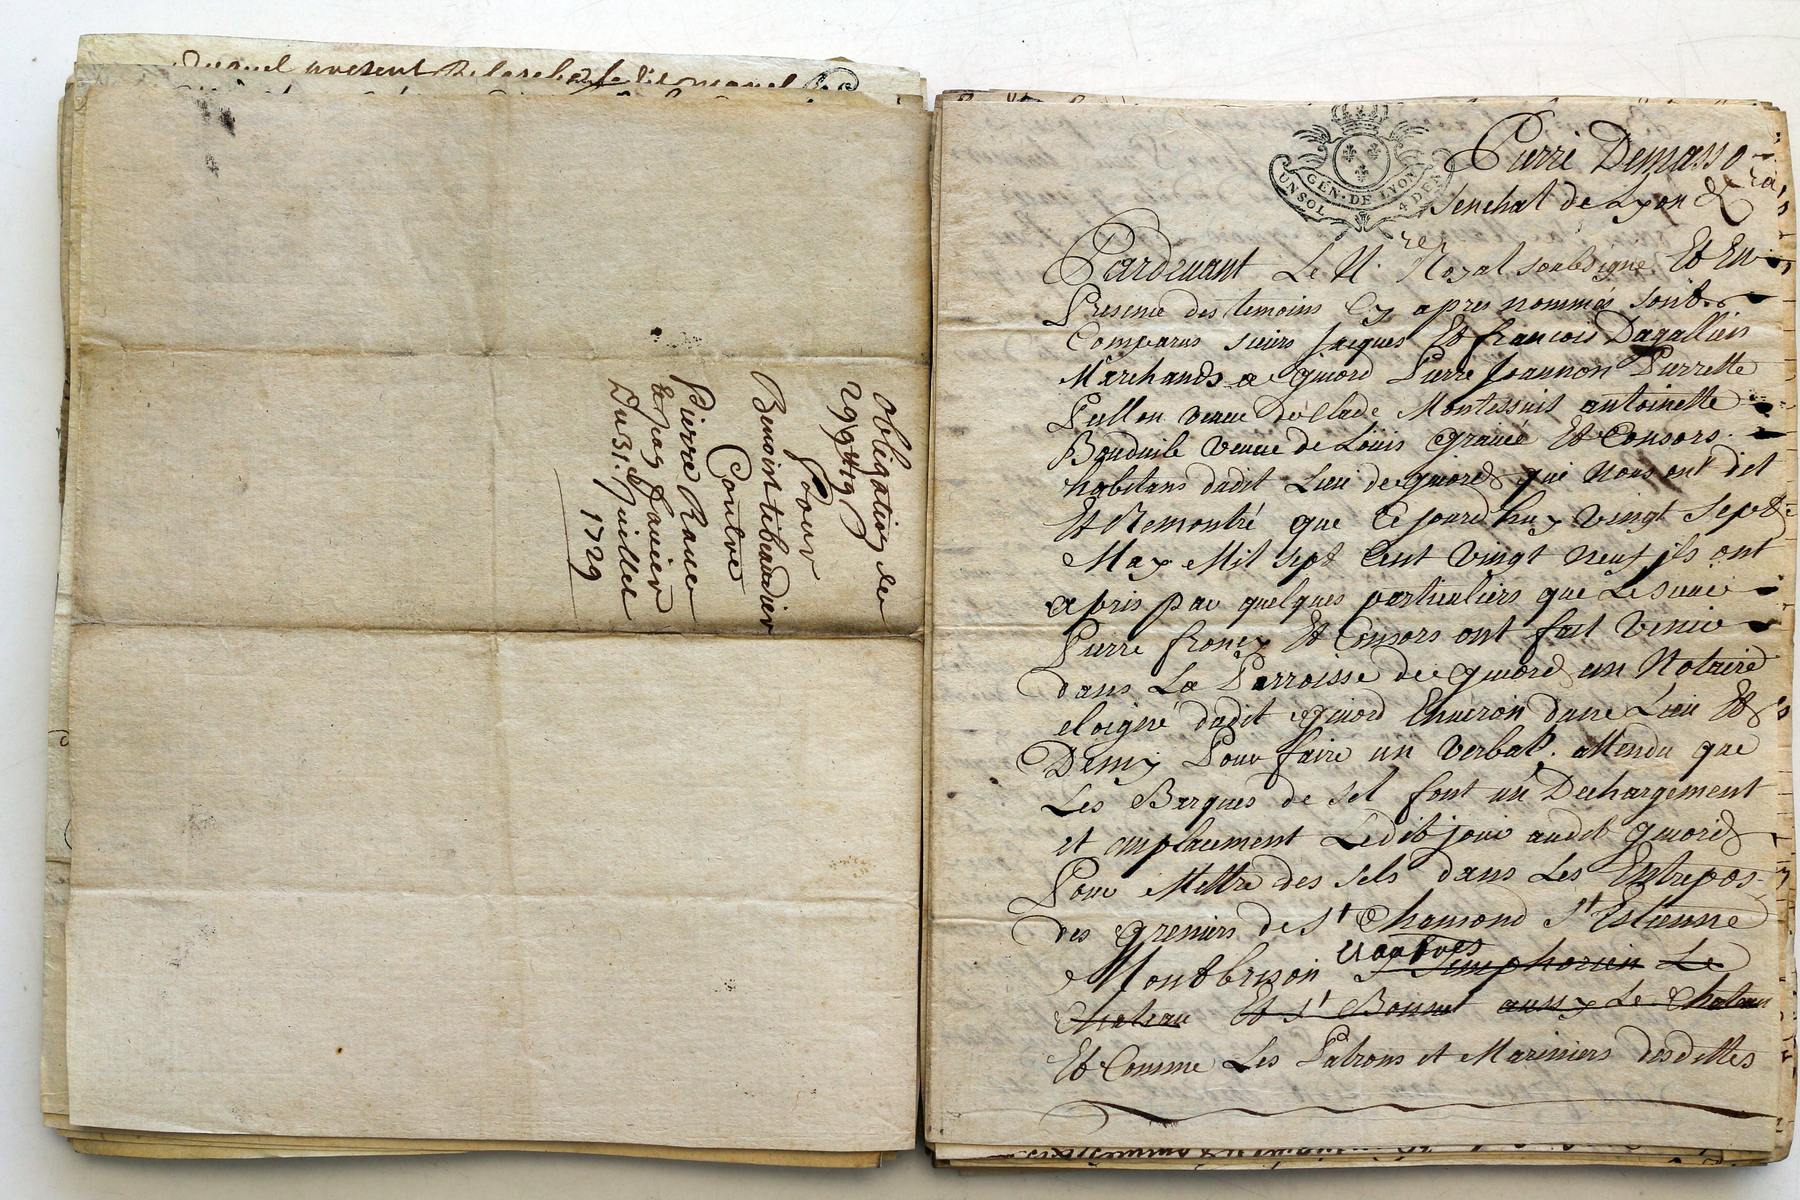 obligation de
299# 19s
Pour
Benoist tibaudier
Contre
Pierre
Du 31. Juillet
1729
GEN. DE LYON
UN SOL 4 DEN
Pierre
Senchal de Lyon &
Pardevant Le N. Royal soubsigne Et En
Presence des temoins Cy apres nommés sont
Comparus sieurs Jacques Et francois Dagallier
Marchands a givord Pierre Joannon Pierrette
veuve de Montessuit antoinette
veuve de Louis Et Consors
habitans dudit Lieu de givord qui Nous ont dit
Et Remontré que Ce jourdhuy vingt sept
May Mil sept Cent vingt neuf ils ont
apris par quelques particuliers que Le sieur
Pierre Et Consors ont fait venir
dans La Parroisse de givord un Notaire
eloigné dudit givord Environ dune Lieu Et
Demy Pour faire un verbal. attendu que
Les Barques de sel font un Dechargement
et amplacement Ledit jour audit givord
Pour Mettre des sels dans Les Entrepos
des greniers de St Chamond St Estienne
Montbrison St Simphorien Le
Chateau Et St Bonnet aussy Le Chateau
Et Comme Les Patrons et Mariniers desdittes